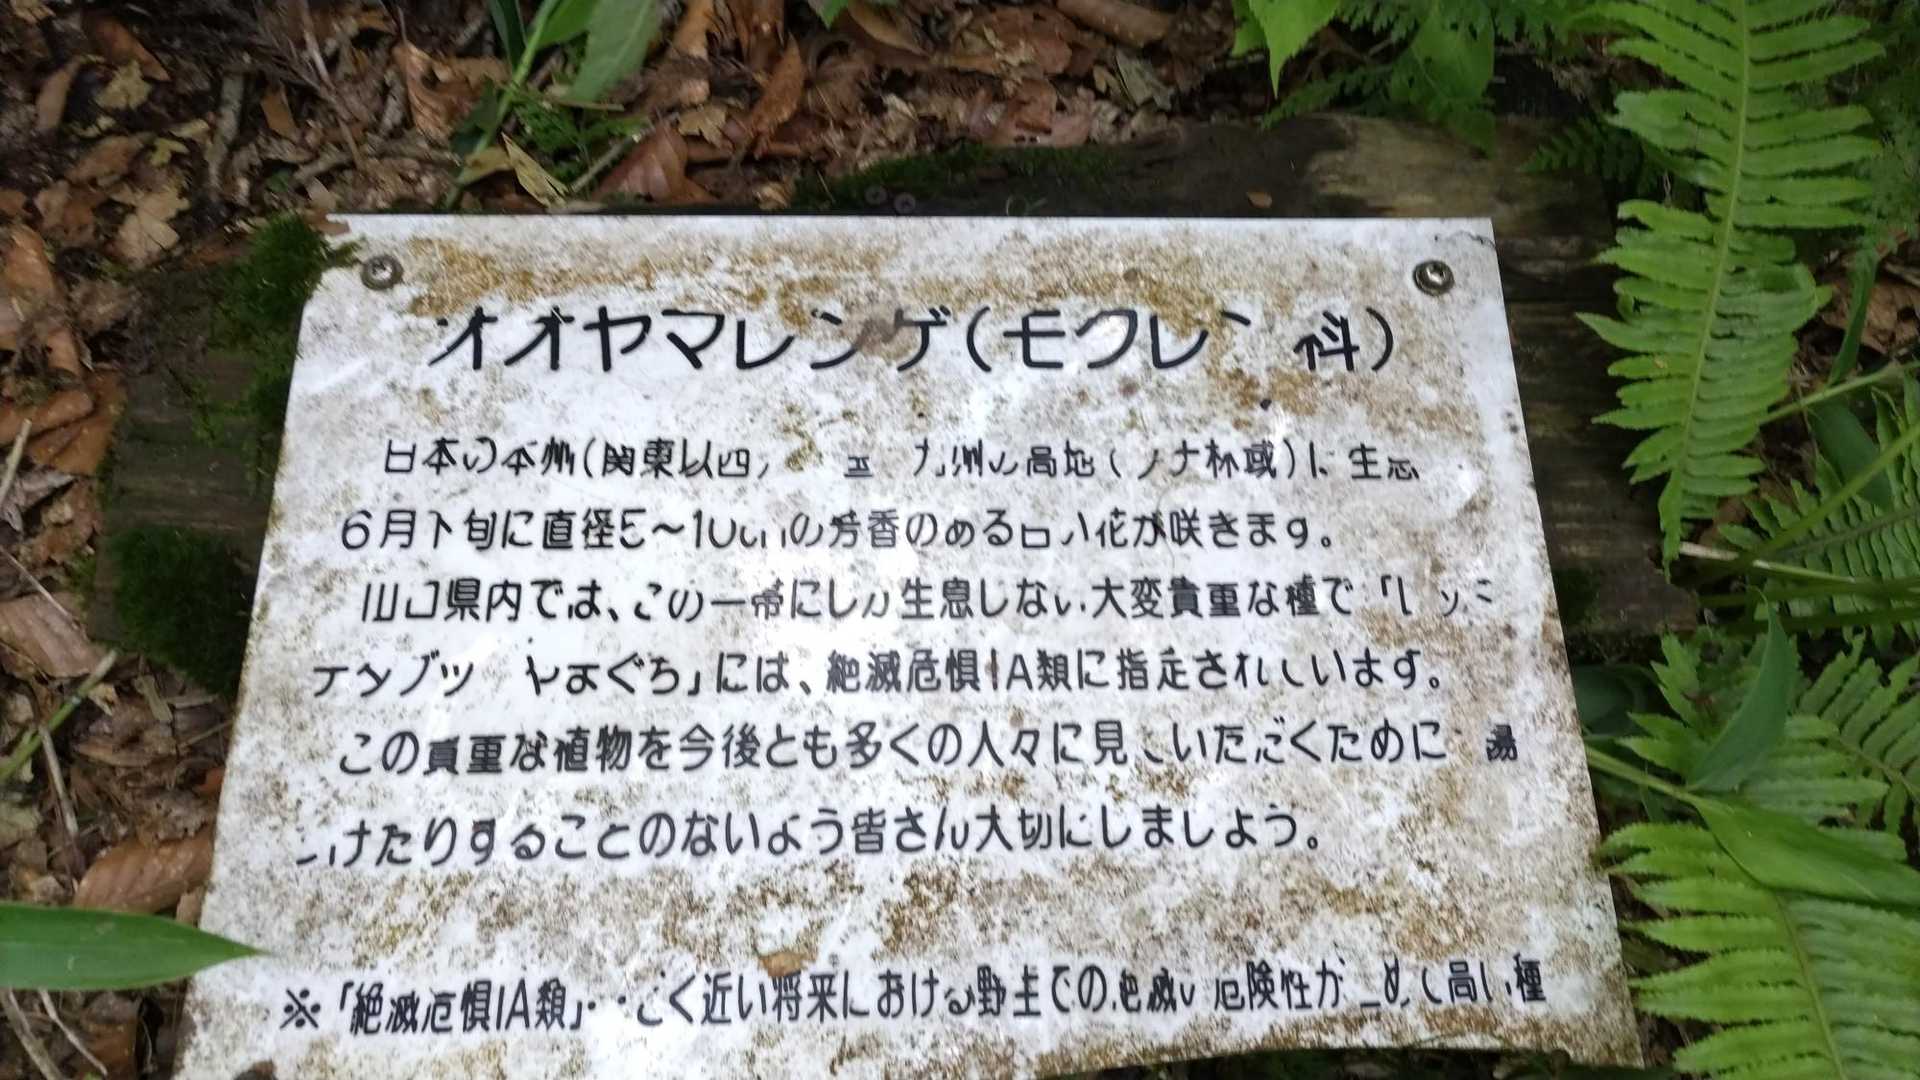 オオヤマレンゲ(モクレン科)
日本の本州(関東以西) 九州の高地(ブナ林域)に生息
6月下旬に直径5〜10cmの芳香のある白い花が咲きます。
山口県内では、この一帯にしか生息しない大変貴重な種で「レッド
データブックやまぐち」には、絶滅危惧IA類に指定されています。
この貴重な植物を今後とも多くの人々に見ていただくために 傷
つけたりすることのないよう皆さん大切にしましょう。
※「絶滅危惧IA類」…ごく近い将来における野生での絶滅の危険性が極めて高い種